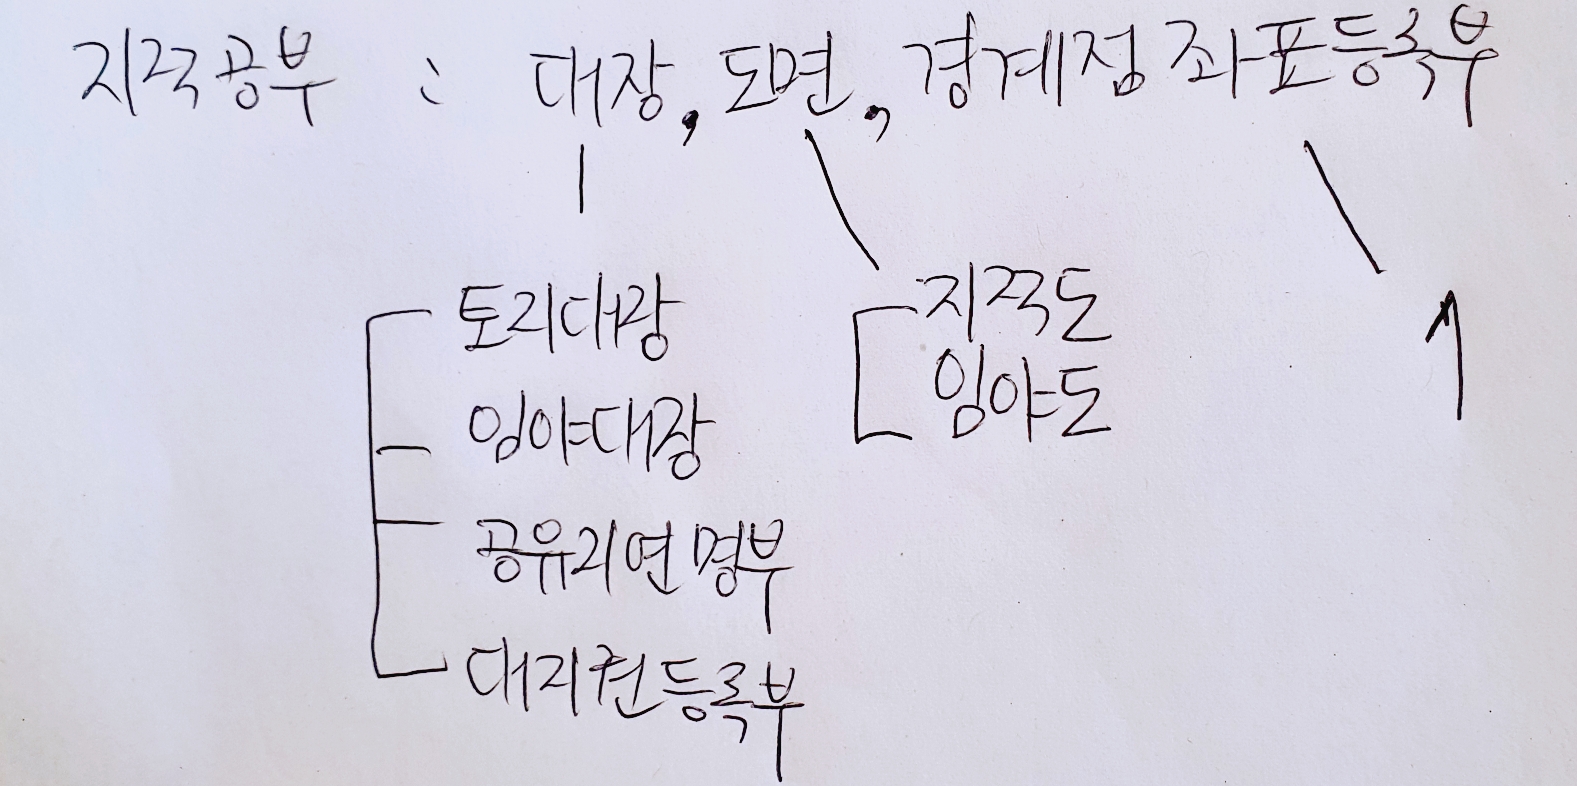 지적공부 : 대장, 도면, 경계점좌표등록부
토지대장
임야대장
공유지연명부
대지권등록부
지적도
임야도
1